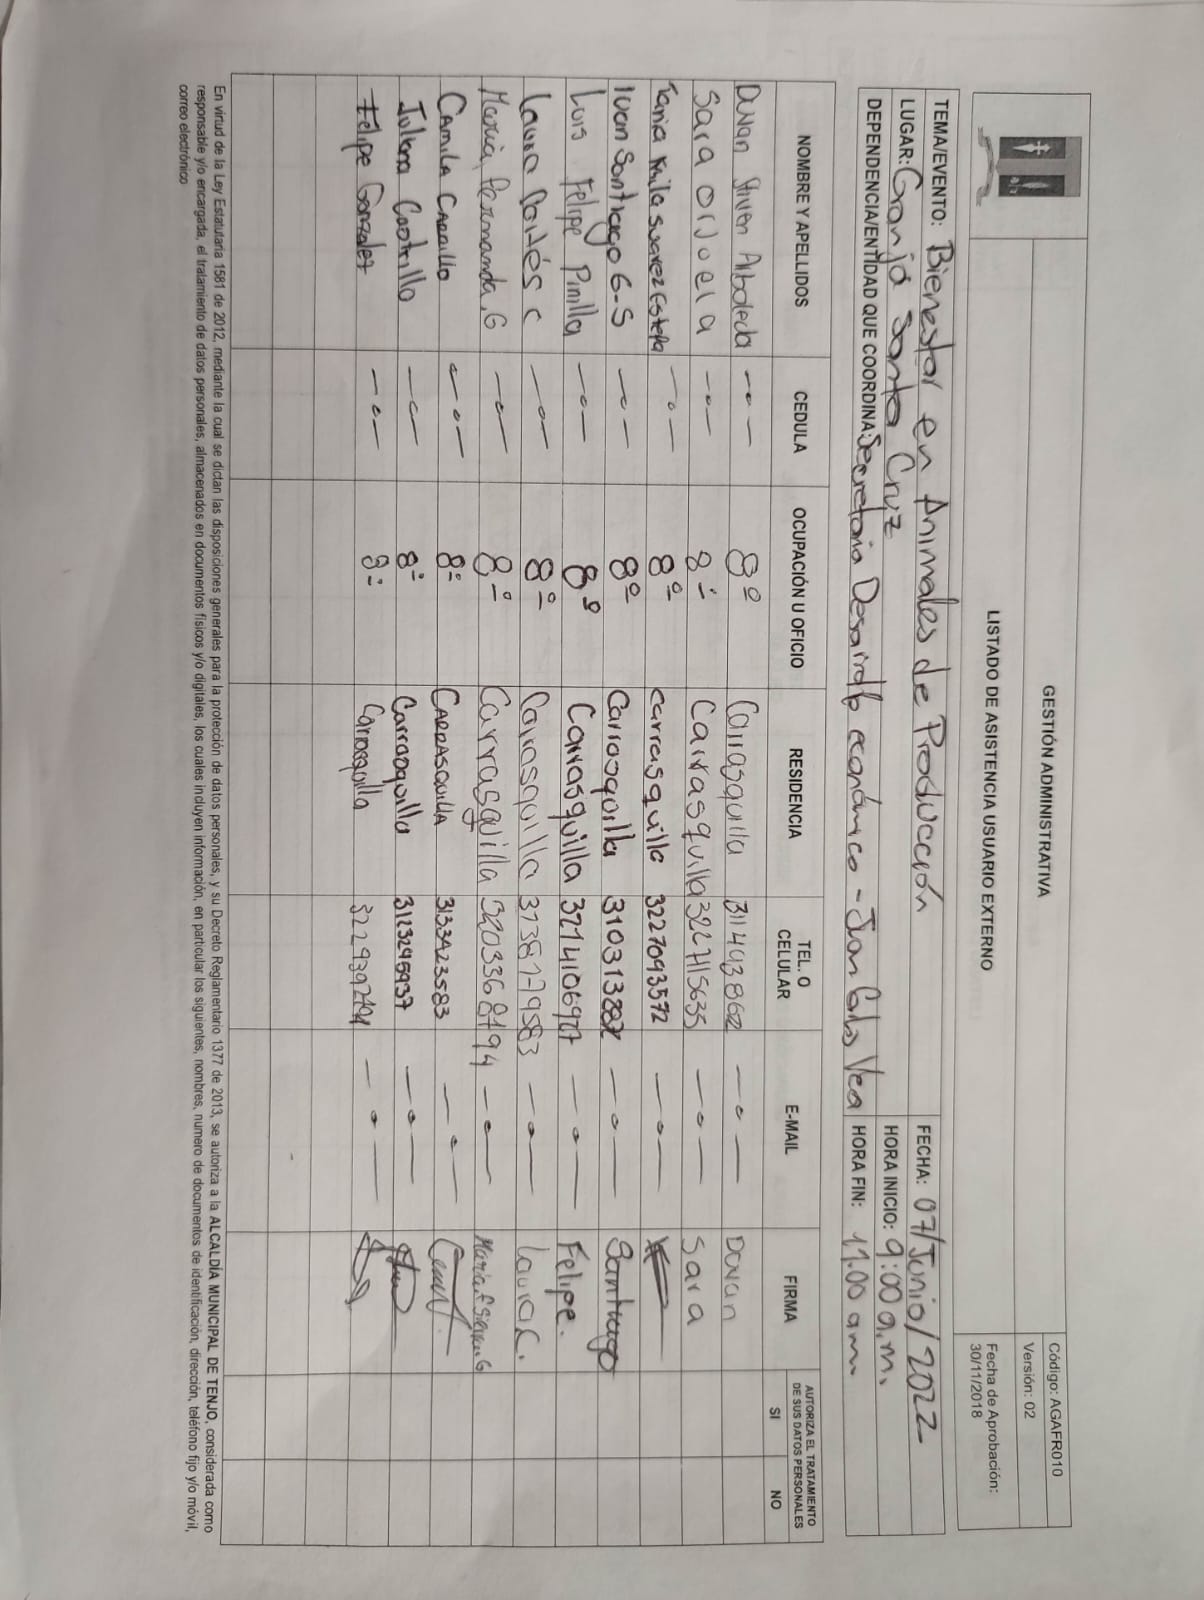 GESTIÓN ADMINISTRATIVA
LISTADO DE ASISTENCIA USUARIO EXTERNO
Código: AGAFR010
Versión: 02
Fecha de Aprobación:
30/11/2018
TEMA/EVENTO: Bienestar en Animales de Producción
FECHA: 07/Junio/2022
LUGAR: Granja Santa Cruz
HORA INICIO: 9:00 a.m.
DEPENDENCIA/ENTIDAD QUE COORDINA: Secretaria Desarrollo económico - Juan Carlos Vea
HORA FIN: 11.00 am.
NOMBRE Y APELLIDOS CEDULA OCUPACIÓN U OFICIO RESIDENCIA TEL. O CELULAR E-MAIL FIRMA AUTORIZA EL TRATAMIENTO DE SUS DATOS PERSONALES SI NO
Duvan Stiven Arboleda --- 8º Carrasquilla --- Duvan
Sara Orjuela --- 8º Carrasquilla --- Sara
Tania Suarez --- 8º Carrasquilla 3227093572 ---
Ivan Santiago G-S --- 8º Carrasquilla --- Santiago
Luis Felipe Pinilla --- 8º Carrasquilla --- Felipe.
Laura Cortés C --- 8º Carrasquilla --- Laura C.
Maria Fernanda. G --- 8º Carrasquilla ---
Camila Carrillo --- 8º CARRASQUILLA 3133423583 ---
Juliana Castrillo --- 8º Carrasquilla 3112345937 ---
Felipe Gonzalez --- 8º Carrasquilla ---
En virtud de la Ley Estatutaria 1581 de 2012, mediante la cual se dictan las disposiciones generales para la protección de datos personales, y su Decreto Reglamentario 1377 de 2013, se autoriza a la ALCALDÍA MUNICIPAL DE TENJO, considerada como
responsable y/o encargada, el tratamiento de datos personales, almacenados en documentos físicos y/o digitales, los cuales incluyen información, en particular los siguientes, nombres, numero de documentos de identificación, dirección, teléfono fijo y/o móvil,
correo electrónico